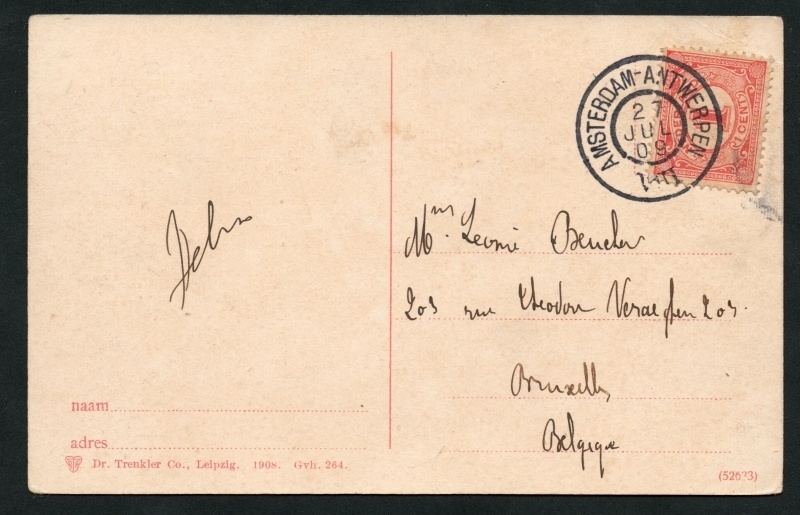 AMSTERDAM-ANTWERPEN
27
JUL
09
CENT
Mme Leonie Beucher
203 rue Théodor Verhaegen 203.
Bruxelles
Belgique
naam
adres
Dr. Trenkler Co., Leipzig. 1908. Gvh. 264.
(52623)